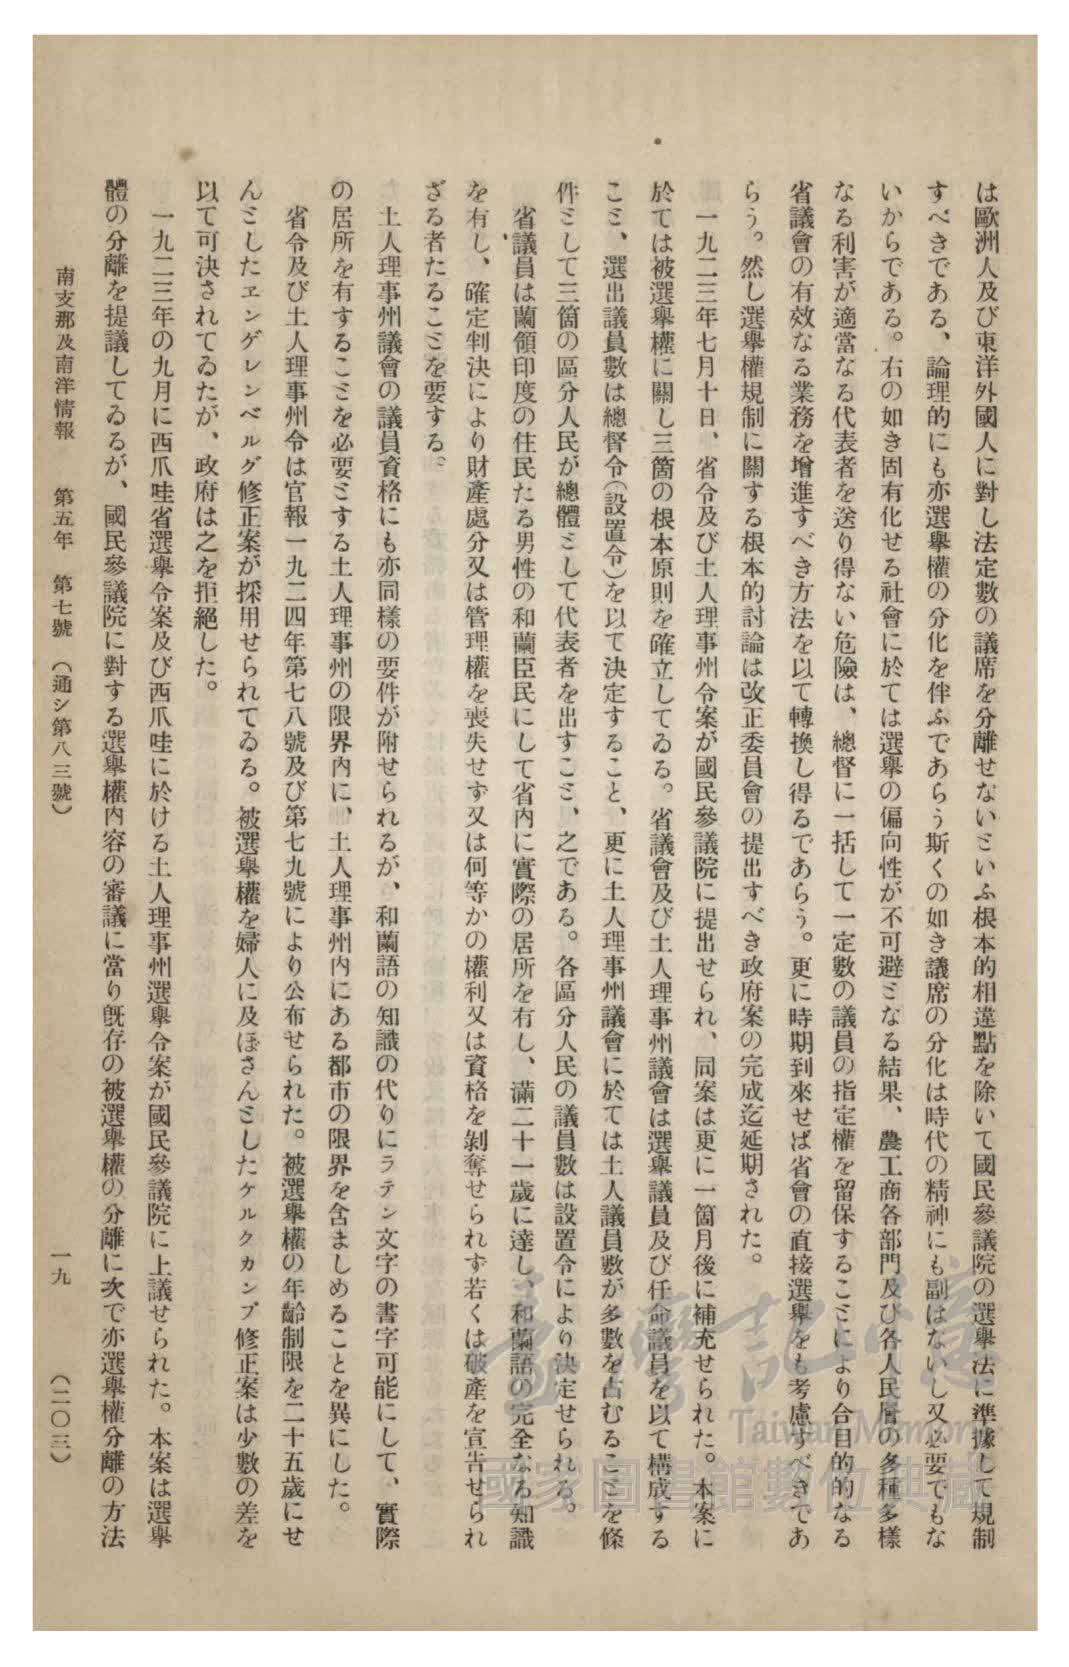 は歐洲人及び東洋外國人に對し法定數の議席を分離せないといふ根本的相違點を除いて國民參議院の選擧法に準據して規制
すべきである、論理的にも亦選擧權の分化を伴ふであらう斯くの如き議席の分化は時代の精神にも副はないし又必要でもな
いからである。右の如き固有化せる社會に於ては選擧の偏向性が不可避となる結果、農工商各部門及び各人民層の多種多樣
なる利害が適當なる代表者を送り得ない危險は、總督に一括して一定數の議員の指定權を留保することにより合目的的なる
省議會の有效なる業務を增進すべき方法を以て轉換し得るであらう。更に時期到來せば省會の直接選擧をも考慮すべきであ
らう。然し選擧權規制に關する根本的討論は改正委員會の提出すべき政府案の完成迄延期された。
一九二三年七月十日、省令及び土人理事州令案が國民參議院に提出せられ、同案は更に一箇月後に補充せられた。本案に
於ては被選擧權に關し三箇の根本原則を確立してゐる。省議會及び土人理事州議會は選擧議員及び任命議員を以て構成する
こと、選出議員數は總督令(設置令)を以て決定すること、更に土人理事州議會に於ては土人議員數が多數を占むることを條
件として三箇の區分人民が總體として代表者を出すこと、之である。各區分人民の議員數は設置令により決定せられる。
省議員は蘭領印度の住民たる男性の和蘭臣民にして省內に實際の居所を有し、滿二十一歲に達し、和蘭語の完全なる知識
を有し、確定判決により財產處分又は管理權を喪失せず又は何等かの權利又は資格を剝奪せられず若くは破產を宣告せられ
ざる者たることを要する。
土人理事州議會の議員資格にも亦同樣の要件が附せられるが、和蘭語の知識の代りにラテン文字の書字可能にして、實際
の居所を有することを必要とする土人理事州の限界內に、土人理事州內にある都市の限界を含ましめることを異にした。
省令及び土人理事州令は官報一九二四年第七八號及び第七九號により公布せられた。被選擧權の年齡制限を二十五歲にせ
んとしたエンゲレンベルグ修正案が採用せられてゐる。被選擧權を婦人に及ぼさんとしたケルクカンプ修正案は少數の差を
以て可決されてゐたが、政府は之を拒絕した。
一九二三年の九月に西爪哇省選擧令案及び西爪哇に於ける土人理事州選擧令案が國民參議院に上議せられた。本案は選擧
體の分離を提議してゐるが、國民參議院に對する選擧權內容の審議に當り旣存の被選擧權の分離に次で亦選擧權分離の方法
南支那及南洋情報　第五年　第七號　(通シ第八三號)　一九　(二〇三)
臺灣記憶
Taiwan Memory
國家圖書館數位典藏